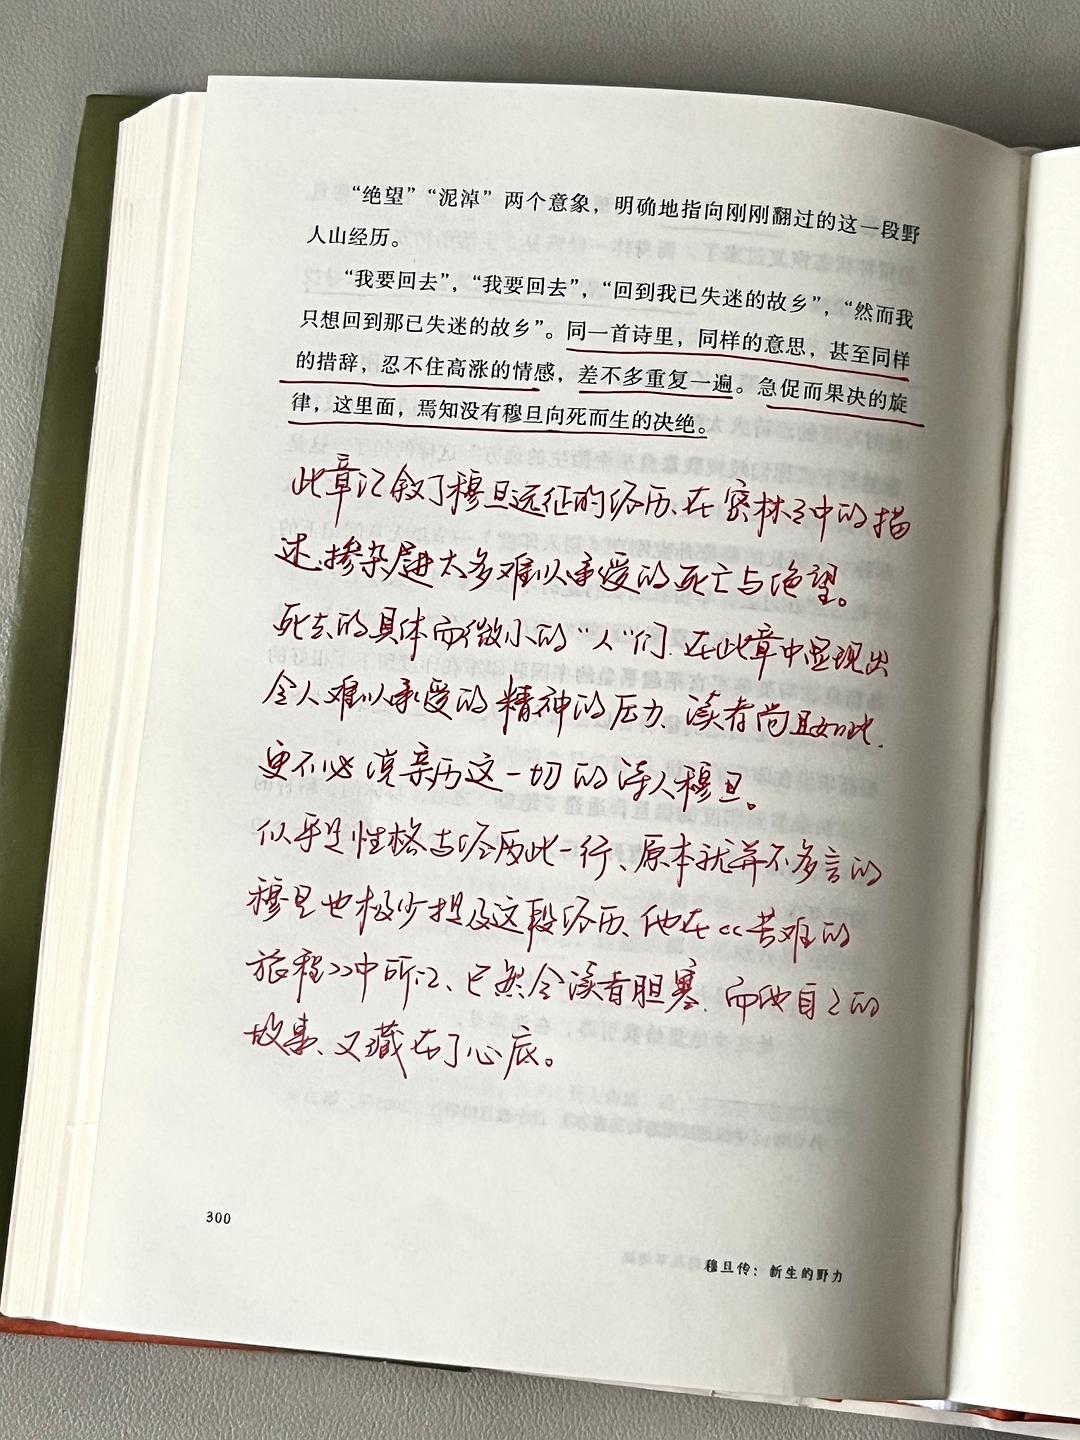 “绝望”“泥淖”两个意象，明确地指向刚刚翻过的这一段野
人山经历。
“我要回去”，“我要回去”，“回到我已失迷的故乡”，“然而我
只想回到那已失迷的故乡”。同一首诗里，同样的意思，甚至同样
的措辞，忍不住高涨的情感，差不多重复一遍。急促而果决的旋
律，这里面，焉知没有穆旦向死而生的决绝。
此章记叙了穆旦远征的经历、在密林之中的描
述、掺杂进太多难以承受的死亡与绝望。
死去的具体而微小的“人”们、在此章中显现出
令人难以承受的精神的压力、读者尚且如此、
更不必说亲历这一切的诗人穆旦。
似乎是性格与经历此一行、原本就并不多言的
穆旦也极少提及这段经历、他在《苦难的
旅程》中所记、已然令读者胆寒、而他自己的
故事、又藏在了心底。
300
穆旦传：新生的野力